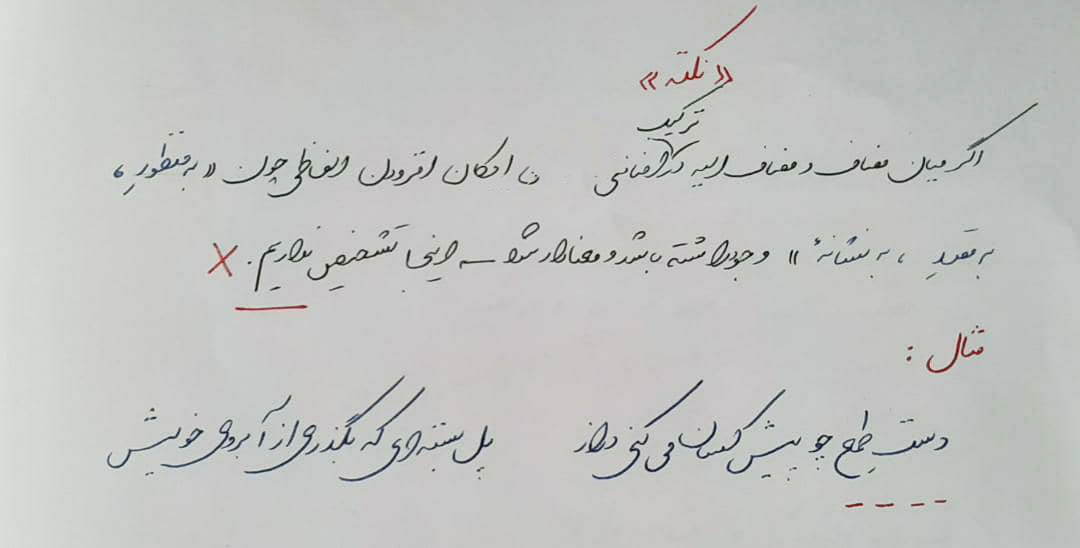 «نکته»
ترکیب
اگر میان مضاف و مضاف الیه در اضافی امکان افزودن الفاظی چون «به منظورِ،
به قصدِ، به نشانهٔ» وجود داشته باشد و معنادار شد اینجا تشخیص نداریم. ×
مثال:
دستِ طمع چو پیش کسان می کنی دراز پل بسته ای که بگذری از آبروی خویش